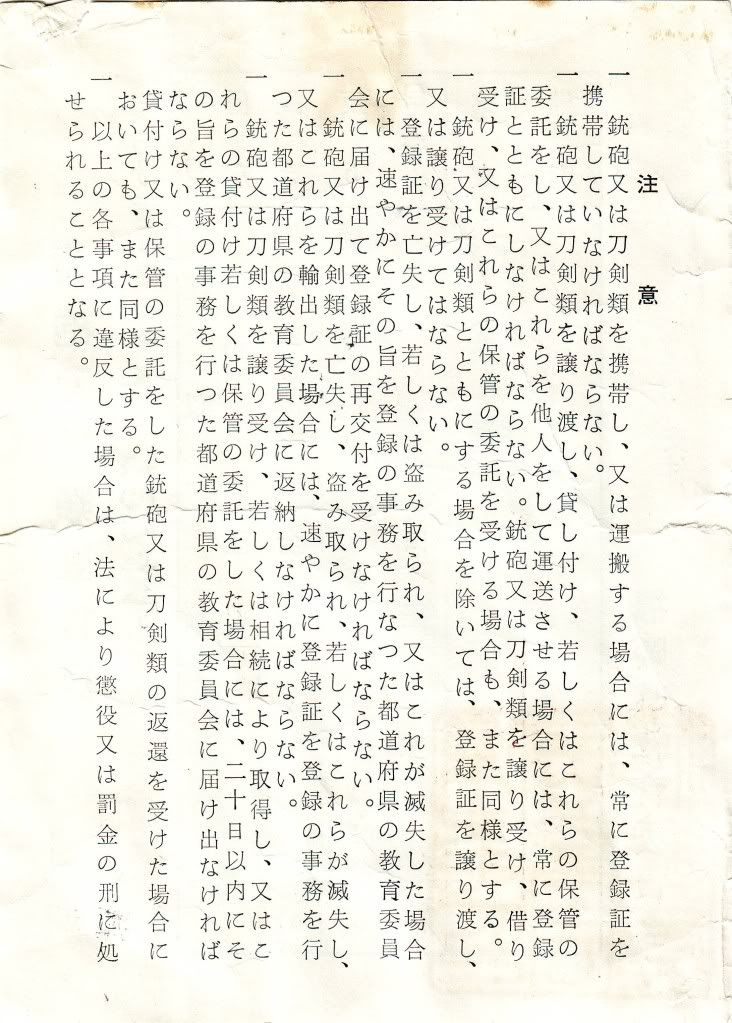 注意
一　銃砲又は刀剣類を携帯し、又は運搬する場合には、常に登録証を
携帯していなければならない。
一　銃砲又は刀剣類を譲り渡し、貸し付け、若しくはこれらの保管の
委託をし、又はこれらを他人をして運送させる場合には、常に登録
証とともにしなければならない。銃砲又は刀剣類を譲り受け、借り
受け、又はこれらの保管の委託を受ける場合も、また同様とする。
一　銃砲又は刀剣類とともにする場合を除いては、登録証を譲り渡し、
又は譲り受けてはならない。
一　登録証を亡失し、若しくは盗み取られ、又はこれが滅失した場合
には、速やかにその旨を登録の事務を行なつた都道府県の教育委員
会に届け出て登録証の再交付を受けなければならない。
一　銃砲又は刀剣類を亡失し、盗み取られ、若しくはこれらが滅失し、
又はこれらを輸出した場合には、速やかに登録証を登録の事務を行
つた都道府県の教育委員会に返納しなければならない。
一　銃砲又は刀剣類を譲り受け、若しくは相続により取得し、又はこ
れらの貸付け若しくは保管の委託をした場合には、二十日以内にそ
の旨を登録の事務を行つた都道府県の教育委員会に届け出なければ
ならない。
貸付け又は保管の委託をした銃砲又は刀剣類の返還を受けた場合に
おいても、また同様とする。
一　以上の各事項に違反した場合は、法により懲役又は罰金の刑に処
せられることとなる。